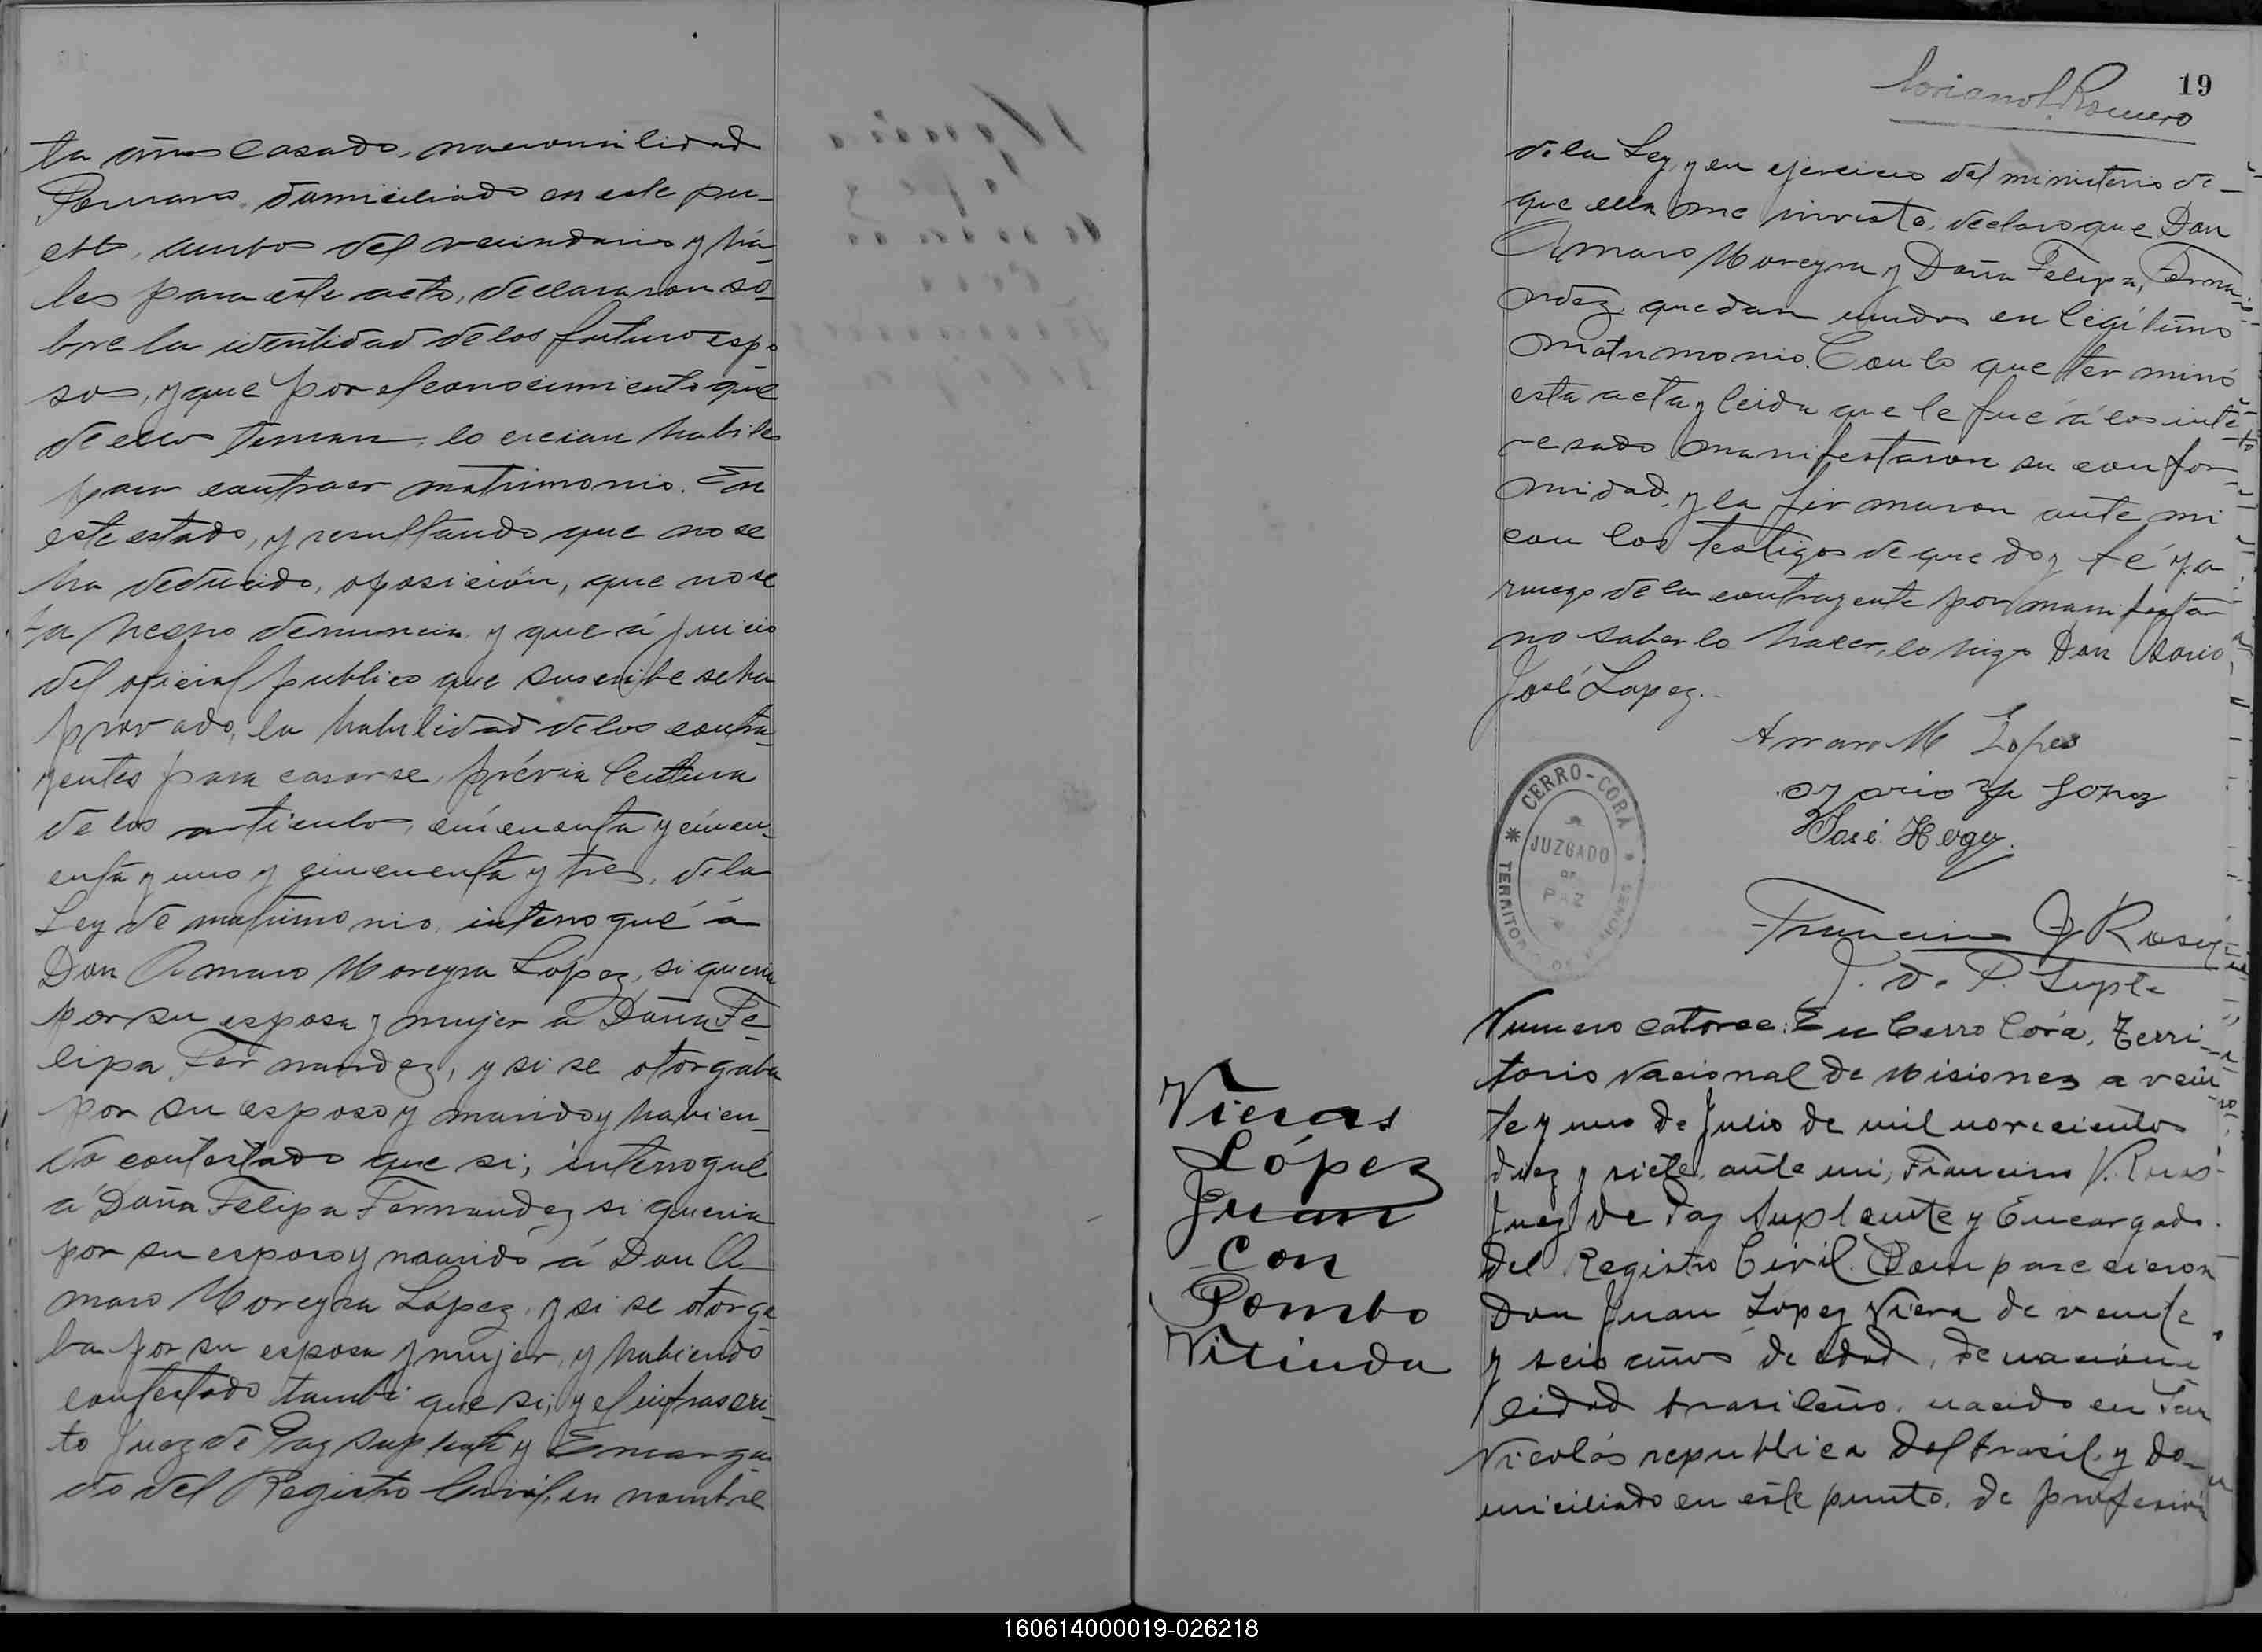 ta años casado, nacionalidad
Peruano, domiciliado en este pun-
eto, ambos del vecindario y há-
les para este acto, declararon so-
bre la identidad de los futuro espo
sos, y que por el conocimiento que
de ellos tenian, lo creian habiles
para contraer matrimonio. En
este estado, y resultando que no se
ha deducido, oposición, que no se
ha hecho denuncia y que á juicio
del oficial publico que suscribe se ha
provado, la habilidad de los contra-
yentes para casarse, prévia lectura
de los articulos, cincuenta y cincu-
enta y uno y cincuenta y tres, de la
Ley de matrimonio, interrogué á
Don Amaro Moreyra López, si queria
por su esposa y mujer a Doña Fe-
lipa Fernandez, y si se otorgaba
por su esposo y marido y habien-
do contestado que si; interrogué
a Doña Felipa Fernandez si queria
por su esposo y marido á Don A-
maro Moreyra López, y si se otorga
ba por su esposa y mujer, y habiendo
contestado tambi que si; y el infrascri-
to Juez de Paz suplente y Encarga-
do del Registro Civil, en nombre
19
Romero
de la Ley, y en ejercicio del ministerio de-
que ella me inviste, declaro que Don
Amaro Moreyra y Doña Felipa, Ferna-
ndez, quedan unidos en legítimo
matrimonio. Con lo que terminó
esta acta y leida que le fué á los inte-
resado manifestaron su confor-
midad, y la firmaron ante mi
con los testigos de que doy fé y a
ruego de la contrayente por manifestar
no saberlo hacer, lo hizo Don
José López.
Amaro M Lopes
José
CERRO-CORÁ
JUZGADO
DE
PAZ
TERRITORIO
Francisco J Rosas
J. de P. Suple
Vieras
López
Juan
con
Pombo
Vitinda
Numero catorce: En Cerro Córa, Terri-
torio Nacional de Misiones a vein
te y uno de Julio de mil novecientos
diez y siete, ante mi, Francisco V. Rosas
Juez de Paz Suplente y Encargado
del Registro Civil. Comparecieron
Don Juan Lopez Viera de veinte
y seis años de edad, de naciona-
lidad brasileño, nacido en San
Nicolás republica del brasil, y do-
miciliado en este punto, de profesión
160614000019-026218